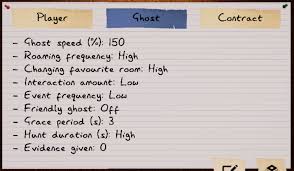 Player Ghost Contract
- Ghost speed (%): 150
- Roaming frequency: High
- Changing favourite room: High
- Interaction amount: Low
- Event frequency: Low
- Friendly ghost: Off
- Grace period (s): 3
- Hunt duration (s): High
- Evidence given: 0